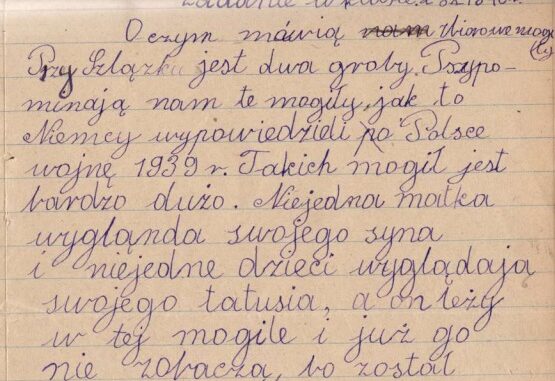 zadanie w klasie.
O czym mówią nam zbiorowe mogi
Przy Szlązku jest dwa groby. Przypo-
minają nam te mogiły, jak to
Niemcy wypowiedzieli po Polsce
wojnę 1939 r. Takich mogił jest
bardzo dużo. Niejedna matka
wyglánda swojego syna
i niejedne dzieci wyglądają
swojego tatusia, a on leży
w tej mogile i już go
nie zobaczą, bo został